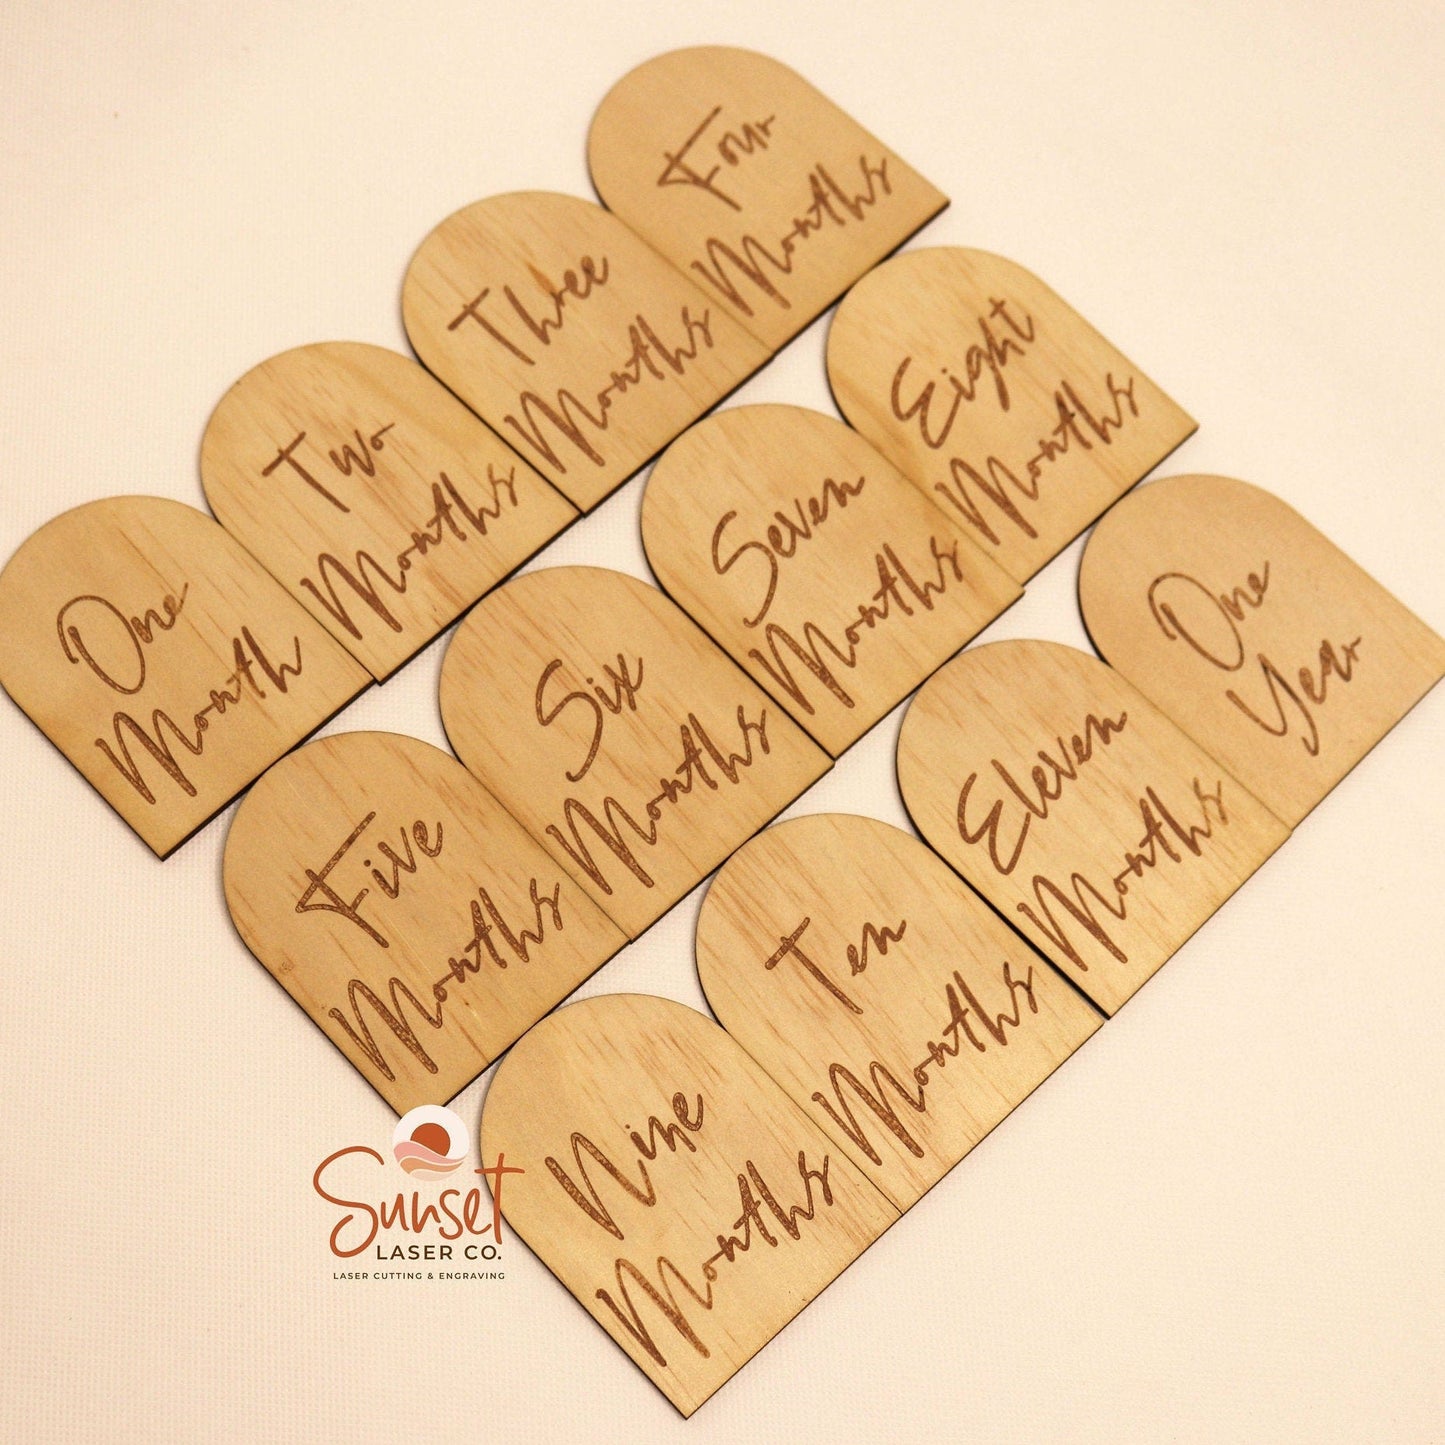 One
Month
Two
Months
Three
Months
Four
Months
Five
Months
Six
Months
Seven
Months
Eight
Months
Nine
Months
Ten
Months
Eleven
Months
One
Year
Sunset
LASER CO.
LASER CUTTING & ENGRAVING